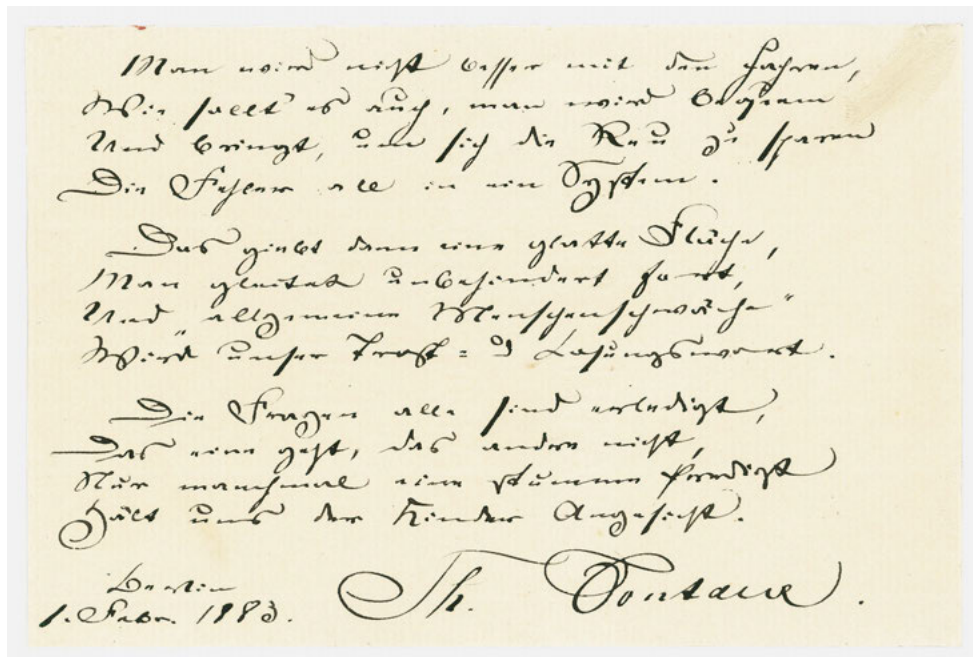 Man wird nicht besser mit den Jahren,
Wie sollt' es auch, man wird bequem
Und bringt, um sich die Reu zu sparen
Die Fehler all in ein System.
Das giebt dann eine glatte Fläche,
Man gleitet unbehindert fort,
Und „allgemeine Menschenschwäche“
Wird unser Trost- u Losungswort.
Die Fragen alle sind erledigt,
Das eine geht, das andre nicht,
Nur manchmal eine stumme Predigt
Hält uns der Kinder Angesicht.
Berlin
1. Febr. 1883.
Th. Fontane.